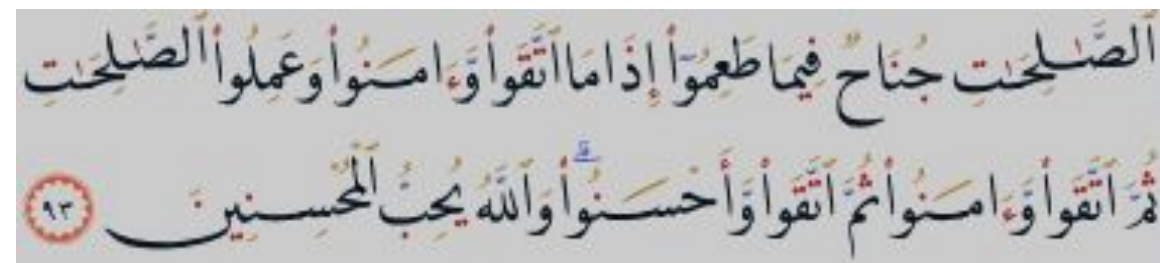 اَ۬لصَّٰلِحَٰتِ جُنَاحٞ فِيمَا طَعِمُوٓاْ إِذَا مَا اَ۪تَّقَواْ وَّءَامَنُواْ وَعَمِلُواْ اُ۬لصَّٰلِحَٰتِ
ثُمَّ اَ۪تَّقَواْ وَّءَامَنُواْ ثُمَّ اَ۪تَّقَواْ وَّأَحْسَنُواْ وَاللَّهُ يُحِبُّ اُ۬لْمُحْسِنِينَ ٩٣